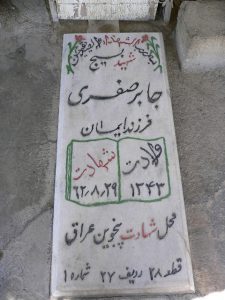 شهید بسیج
جابر صفری
فرزند ایمان
ولادت شهادت
۱۳۴۳ ۶۲،۸،۲۹
محل شهادت پنجوین عراق
قطعه ۲۸ ردیف ۲۷ شماره ۱